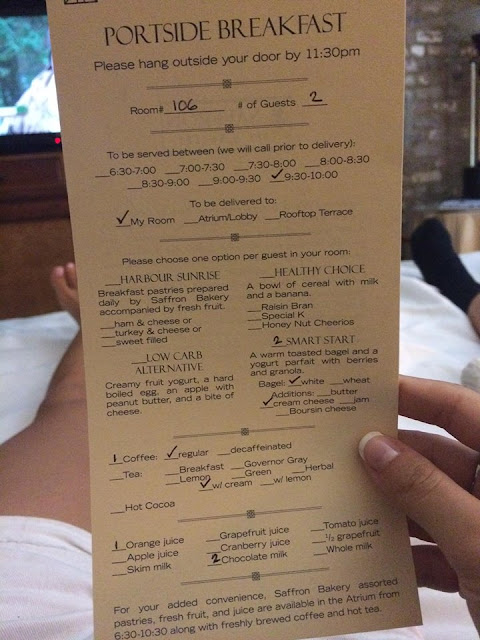 PORTSIDE BREAKFAST
Please hang outside your door by 11:30pm
Room# 106 # of Guests 2
To be served between (we will call prior to delivery):
__6:30-7:00 __7:00-7:30 __7:30-8:00 __8:00-8:30
__8:30-9:00 __9:00-9:30 ✓9:30-10:00
To be delivered to:
✓My Room __Atrium/Lobby __Rooftop Terrace
Please choose one option per guest in your room:
__HARBOUR SUNRISE
Breakfast pastries prepared
daily by Saffron Bakery
accompanied by fresh fruit.
__ham & cheese or
__turkey & cheese or
__sweet filled
__LOW CARB
ALTERNATIVE
Creamy fruit yogurt, a hard
boiled egg, an apple with
peanut butter, and a bite of
cheese.
__HEALTHY CHOICE
A bowl of cereal with milk
and a banana.
__Raisin Bran
__Special K
__Honey Nut Cheerios
2 SMART START
A warm toasted bagel and a
yogurt parfait with berries
and granola.
Bagel: ✓white __wheat
Additions: __butter
✓cream cheese __jam
__Boursin cheese
1 Coffee: ✓regular __decaffeinated
__Tea: __Breakfast __Governor Gray
__Lemon __Green __Herbal
✓w/ cream __w/ lemon
__Hot Cocoa
1 Orange juice __Grapefruit juice __Tomato juice
__Apple juice __Cranberry juice __½ grapefruit
__Skim milk 2 Chocolate milk __Whole milk
For your added convenience, Saffron Bakery assorted
pastries, fresh fruit, and juice are available in the Atrium from
6:30-10:30 along with freshly brewed coffee and hot tea.